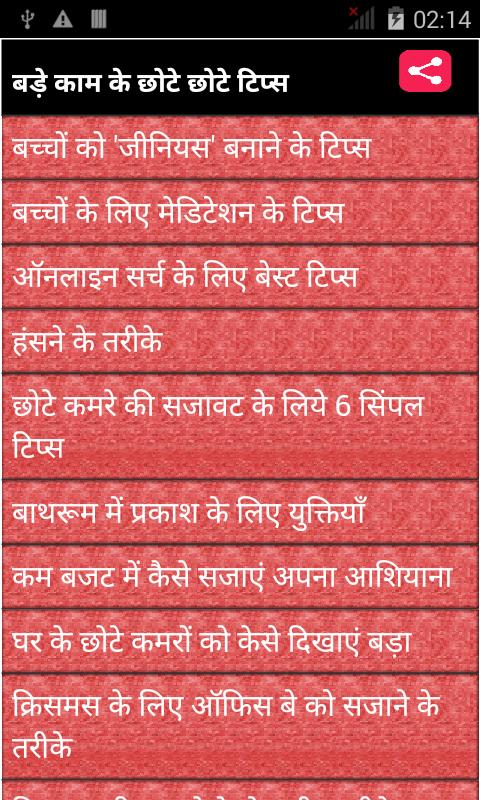 02:14
बड़े काम के छोटे छोटे टिप्स
बच्चों को 'जीनियस' बनाने के टिप्स
बच्चों के लिए मेडिटेशन के टिप्स
ऑनलाइन सर्च के लिए बेस्ट टिप्स
हंसने के तरीके
छोटे कमरे की सजावट के लिये 6 सिंपल
टिप्स
बाथरूम में प्रकाश के लिए युक्तियाँ
कम बजट में कैसे सजाएं अपना आशियाना
घर के छोटे कमरों को केसे दिखाएं बड़ा
क्रिसमस के लिए ऑफिस बे को सजाने के
तरीके